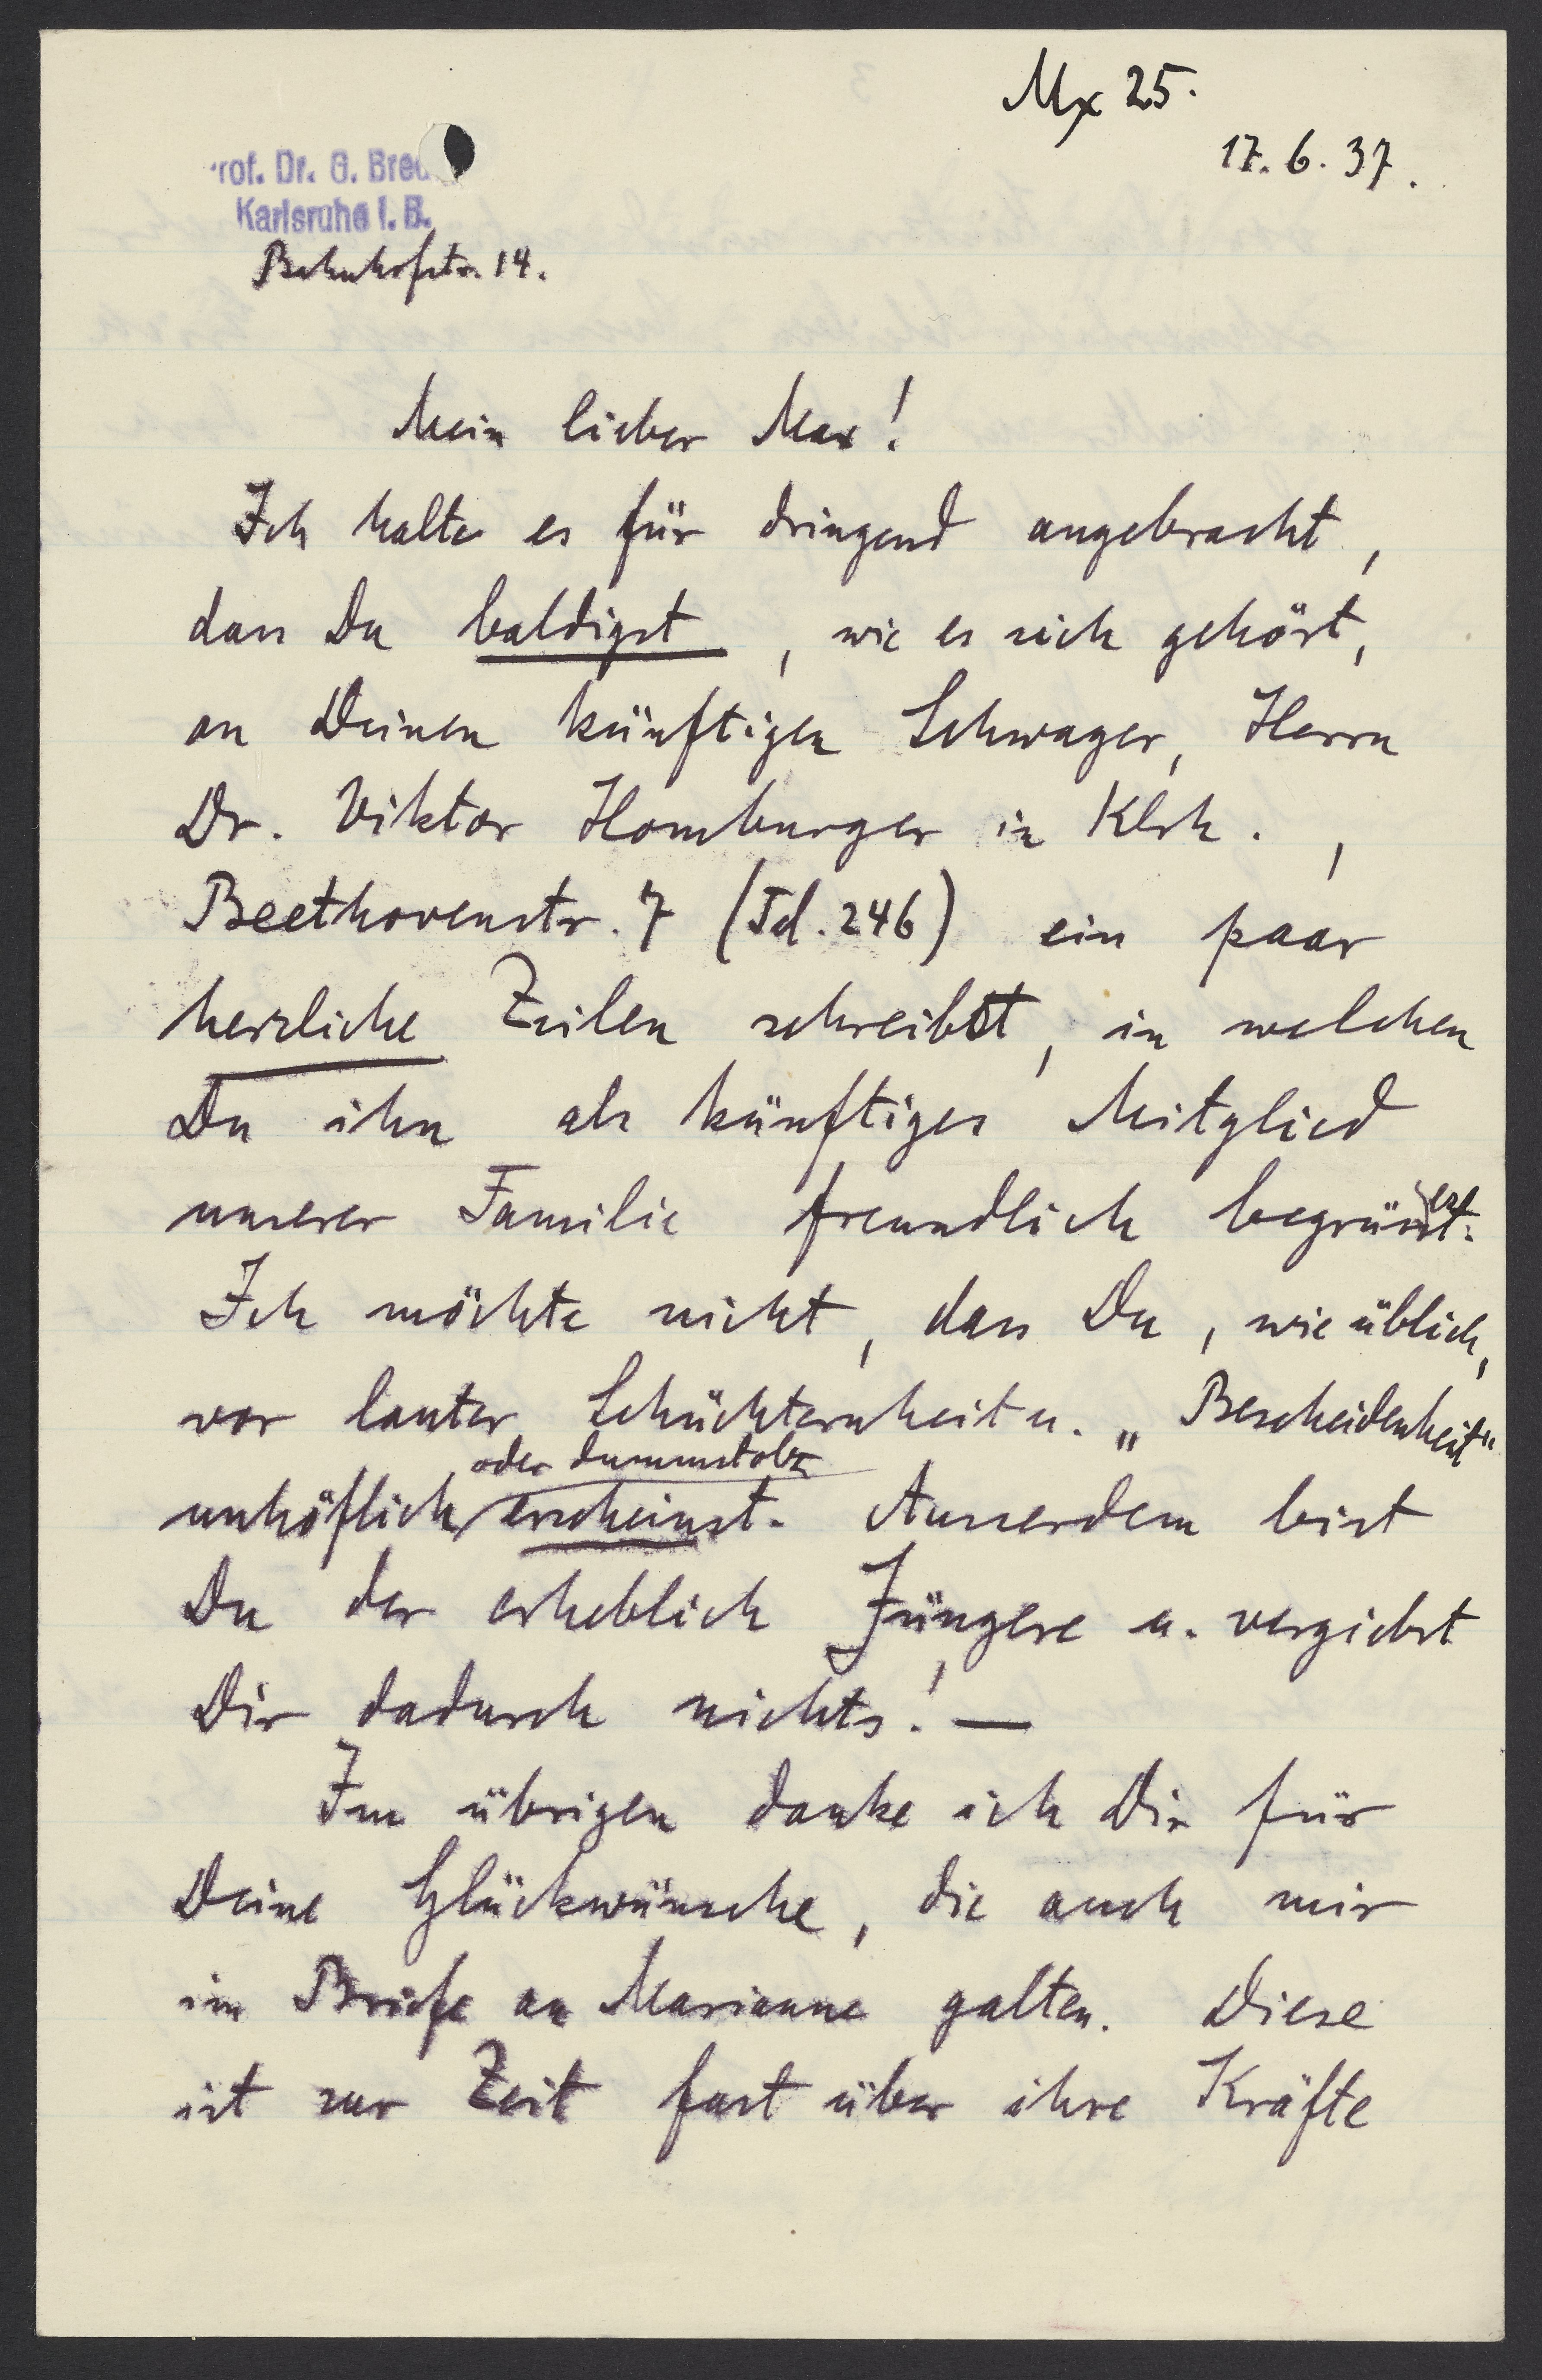 Mx 25.
17. 6. 37.
rof. Dr. G. Bred
Karlsruhe i. B.
Bahnhofstr. 14.
Mein lieber Max!
Ich halte es für dringend angebracht,
dass Du baldigst, wie es sich gehört,
an Deinen künftigen Schwager, Herrn
Dr. Viktor Homburger in Klrh.,
Beethovenstr. 7 (Tel. 246) ein paar
herzliche Zeilen schreibst, in welchen
Du ihn als künftiges Mitglied
unserer Familie freundlich begrüssest.
Ich möchte nicht, dass Du, wie üblich,
vor lauter Schüchternheit u. „Bescheidenheit"
oder dummstolz
unhöflich erscheinst. Ausserdem bist
Du der erheblich Jüngere u. vergiebst
Dir dadurch nichts! —
Im übrigen danke ich Dir für
Deine Glückwünsche, die auch mir
im Briefe an Marianne galten. Diese
ist zur Zeit fast über ihre Kräfte